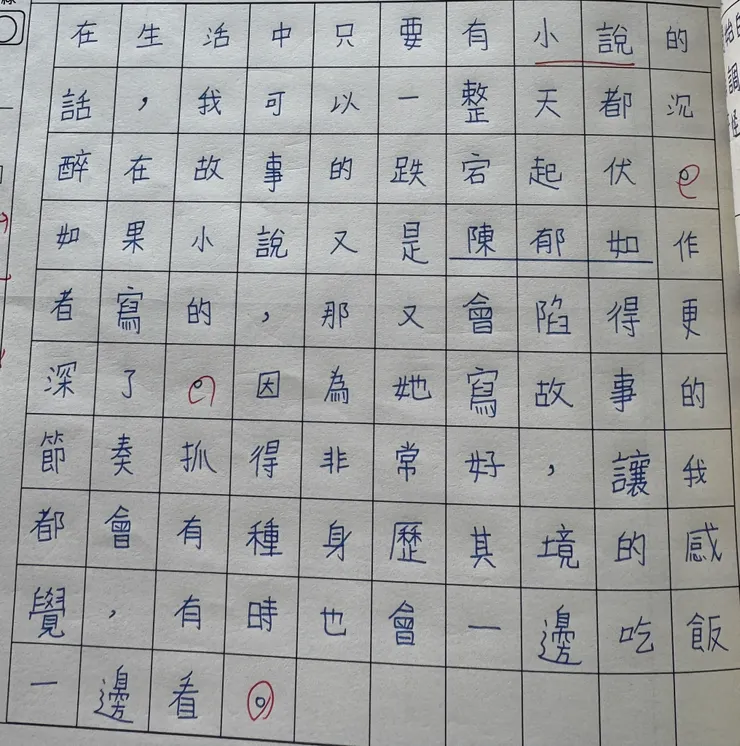 在生活中只要有小說的
話，我可以一整天都沉
醉在故事的跌宕起伏。
如果小說又是陳郁如作
者寫的，那又會陷得更
深了。因為她寫故事的
節奏抓得非常好，讓我
都會有種身歷其境的感
覺，有時也會一邊吃飯
一邊看。